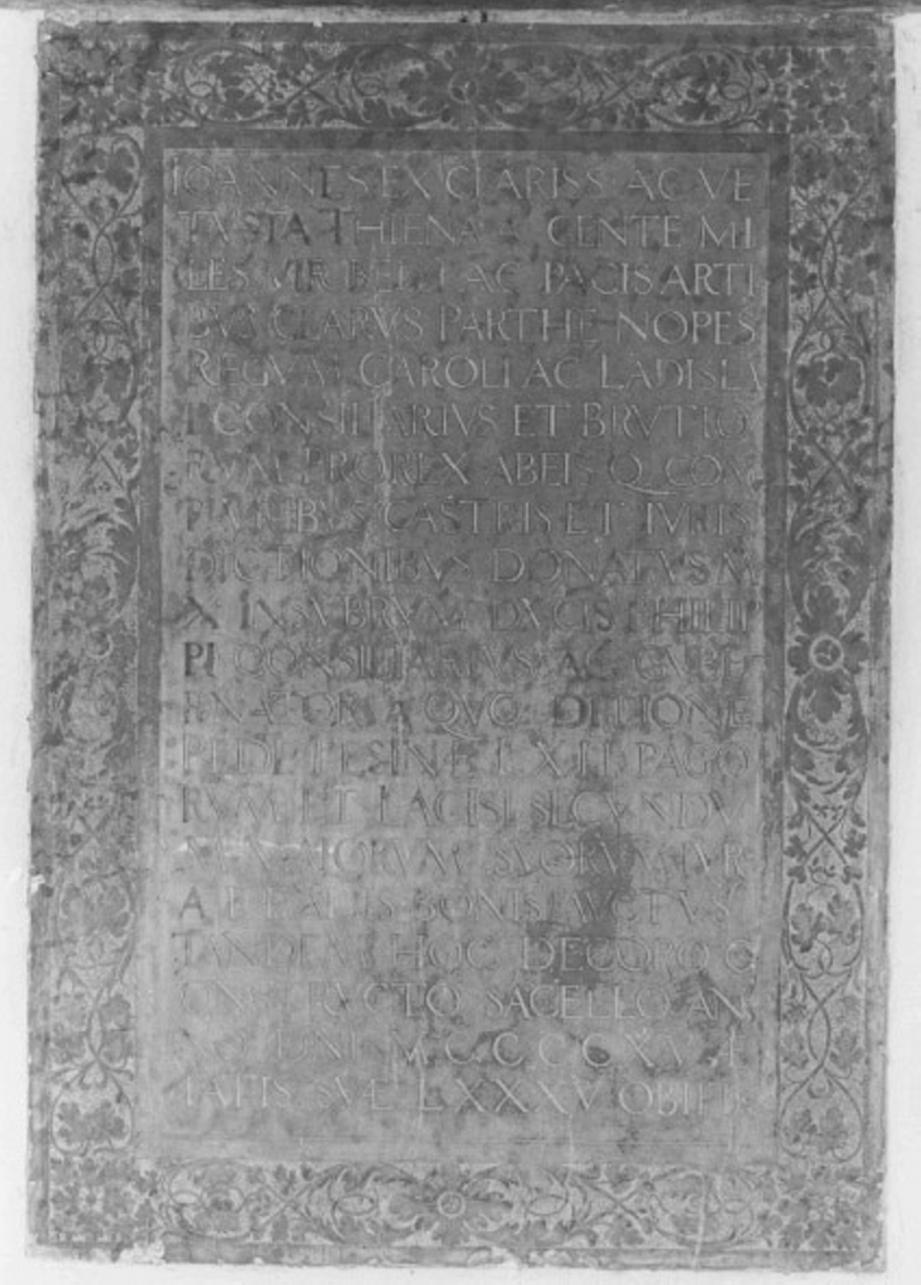 IOANNES EX CLARISS AC VE
TVSTA THIENA A GENTE MI
LES VIR BELLI AC PACIS ARTI
BVS CLARVS PARTHE NOPES
REGVM CAROLI AC LADISLA
I CONSILIARIVS ET BRVTIO
RVM PROREX AB EIS Q COM
PLVRIBVS CASTRIS ET IVRIS
DICTIONIBVS DONATVS M
X INSVBRVM DVCIS PHILIP
PI CONSILIARIVS AC GVBE
RNATOR A QVO DITIONE
LXII PAGO
RVM ET SECVNDV
MAIORVM SVORVM IVR
A ET ALIIS BONIS AVCTVS
TANDEM HOC DECORO C
ONSTRVCTO SACELLO AN
NO DNI M C C C C XV
TATIS SVE LXXXV OBIIT